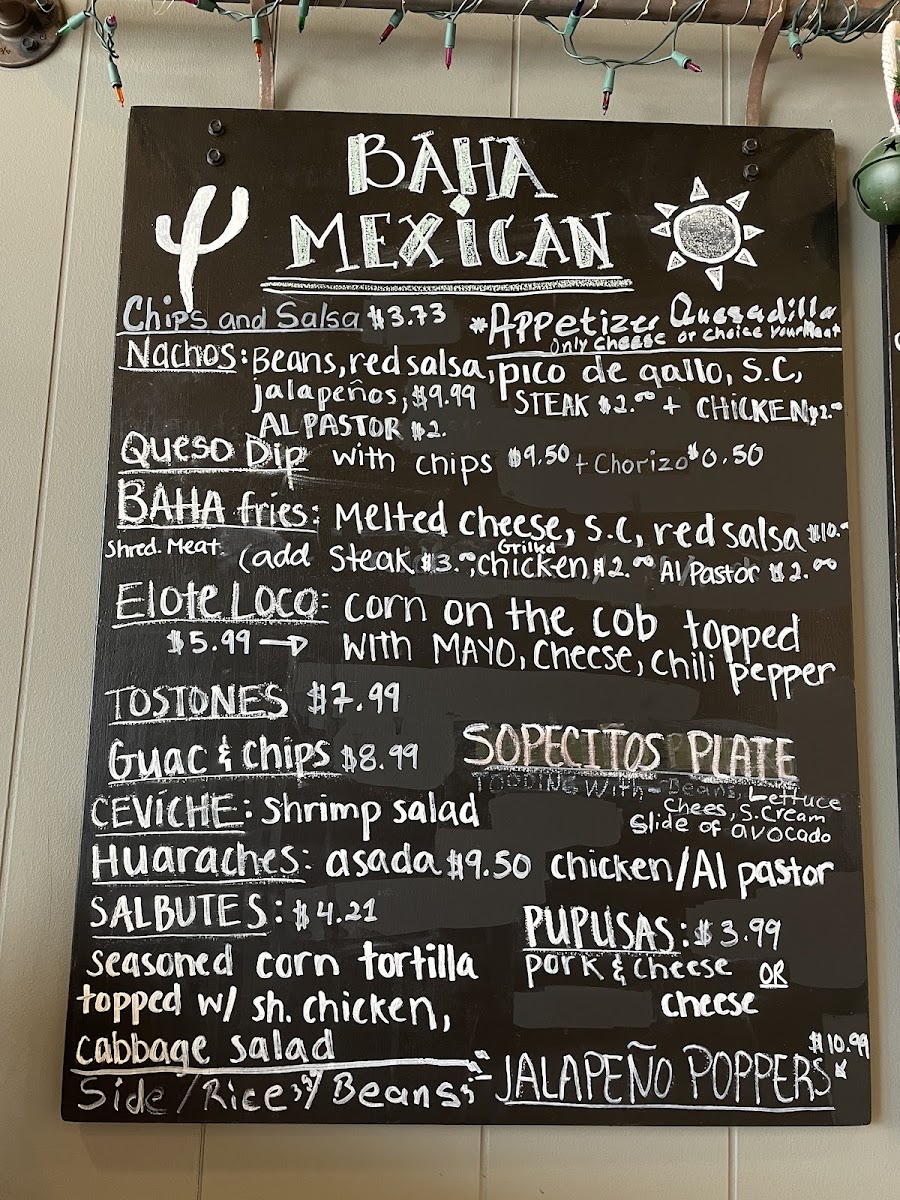 BAHA
MEXICAN
Chips and Salsa $3.73
*Appetizer Quesadilla
only cheese or choice your Meat
Nachos: Beans, red salsa, pico de gallo, S.C,
jalapeños, $9.99 STEAK $2.00 + CHICKEN $2.00
AL PASTOR $2.
Queso Dip with chips $9.50 + Chorizo $0.50
BAHA fries: Melted cheese, S.C, red salsa $10.-
Shred. Meat. (add Steak $3.00, Grilled chicken $2.00 Al Pastor $2.00
Elote Loco: corn on the cob topped
$5.99 → with MAYO, Cheese, Chili pepper
TOSTONES $7.99
Guac & chips $8.99
SOPECITOS PLATE
TOODING With - Beans, Lettuce
Chees, S.Cream
Slide of avocado
CEVÍCHE: Shrimp salad
Huaraches: asada $9.50 chicken/Al pastor
SALBUTES: $4.21
seasoned corn tortilla
topped w/ sh. chicken,
cabbage salad
PUPUSAS: $3.99
pork & cheese OR
cheese
Side / Rice y Beans
JALAPEÑO POPPERS $10.99